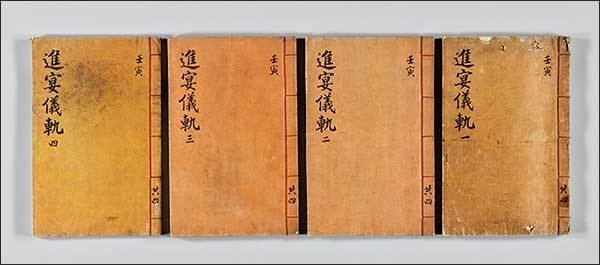 壬寅
進宴儀軌 一
共四
壬寅
進宴儀軌 二
共四
壬寅
進宴儀軌 三
共四
壬寅
進宴儀軌 四
共四